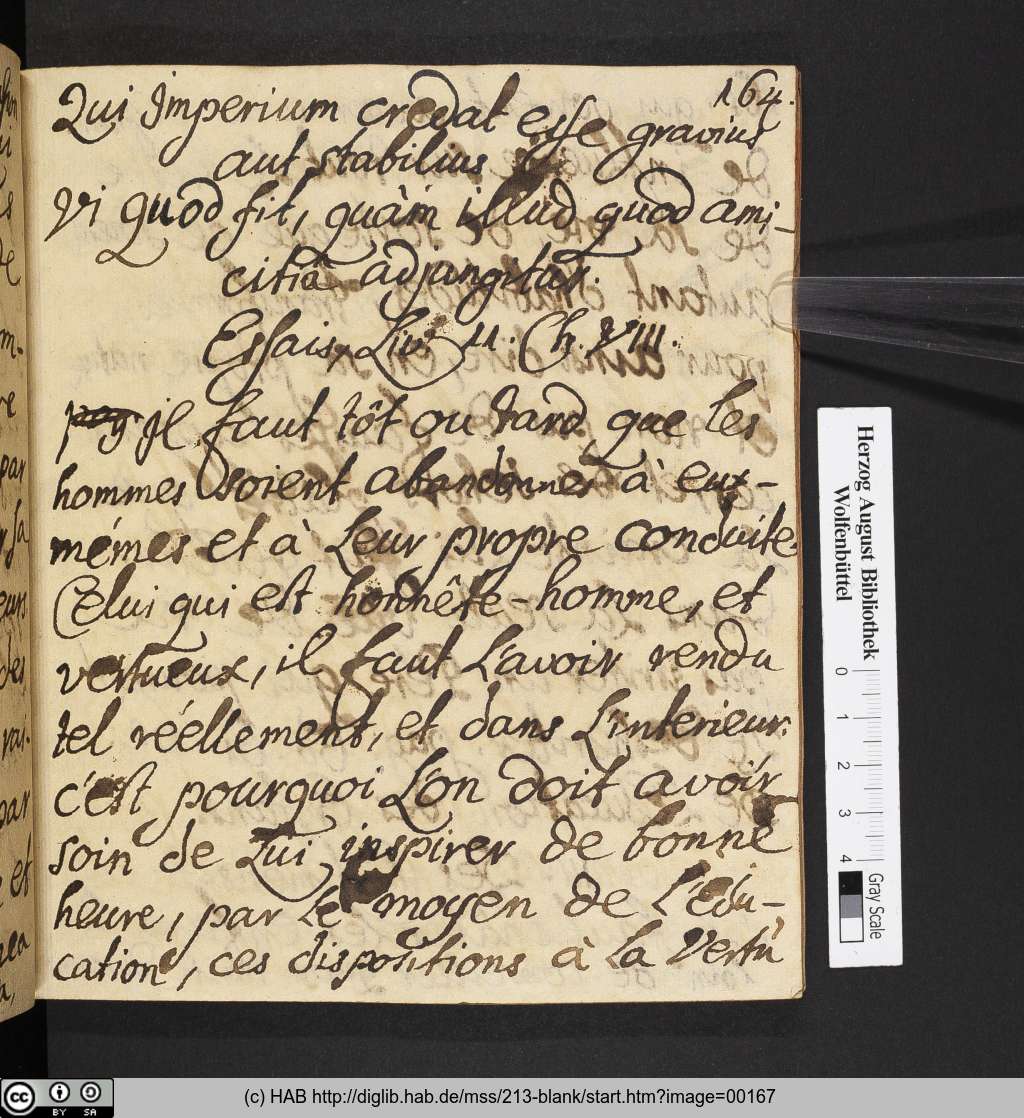 164.
Qui Imperium credat esse gravius
aut stabilius
Vi quod fit, quàm illud quod ami-
citiâ adjungitur.
Essais, Liv. II. Ch. VIII.
il faut tôt ou tard que les
hommes soient abandonnés à eux-
mémes et à leur propre conduite.
Celui qui est honnête-homme, et
vertueux, il faut l'avoir rendu
tel réellement, et dans l'interieur.
c'est pourquoi l'on doit avoir
soin de lui inspirer de bonne
heure, par le moyen de l'édu-
cation, ces dispositions à la Vertu
Herzog August Bibliothek
Wolfenbüttel
0 1 2 3 4
Gray Scale
cc BY SA
(c) HAB http://diglib.hab.de/mss/213-blank/start.htm?image=00167